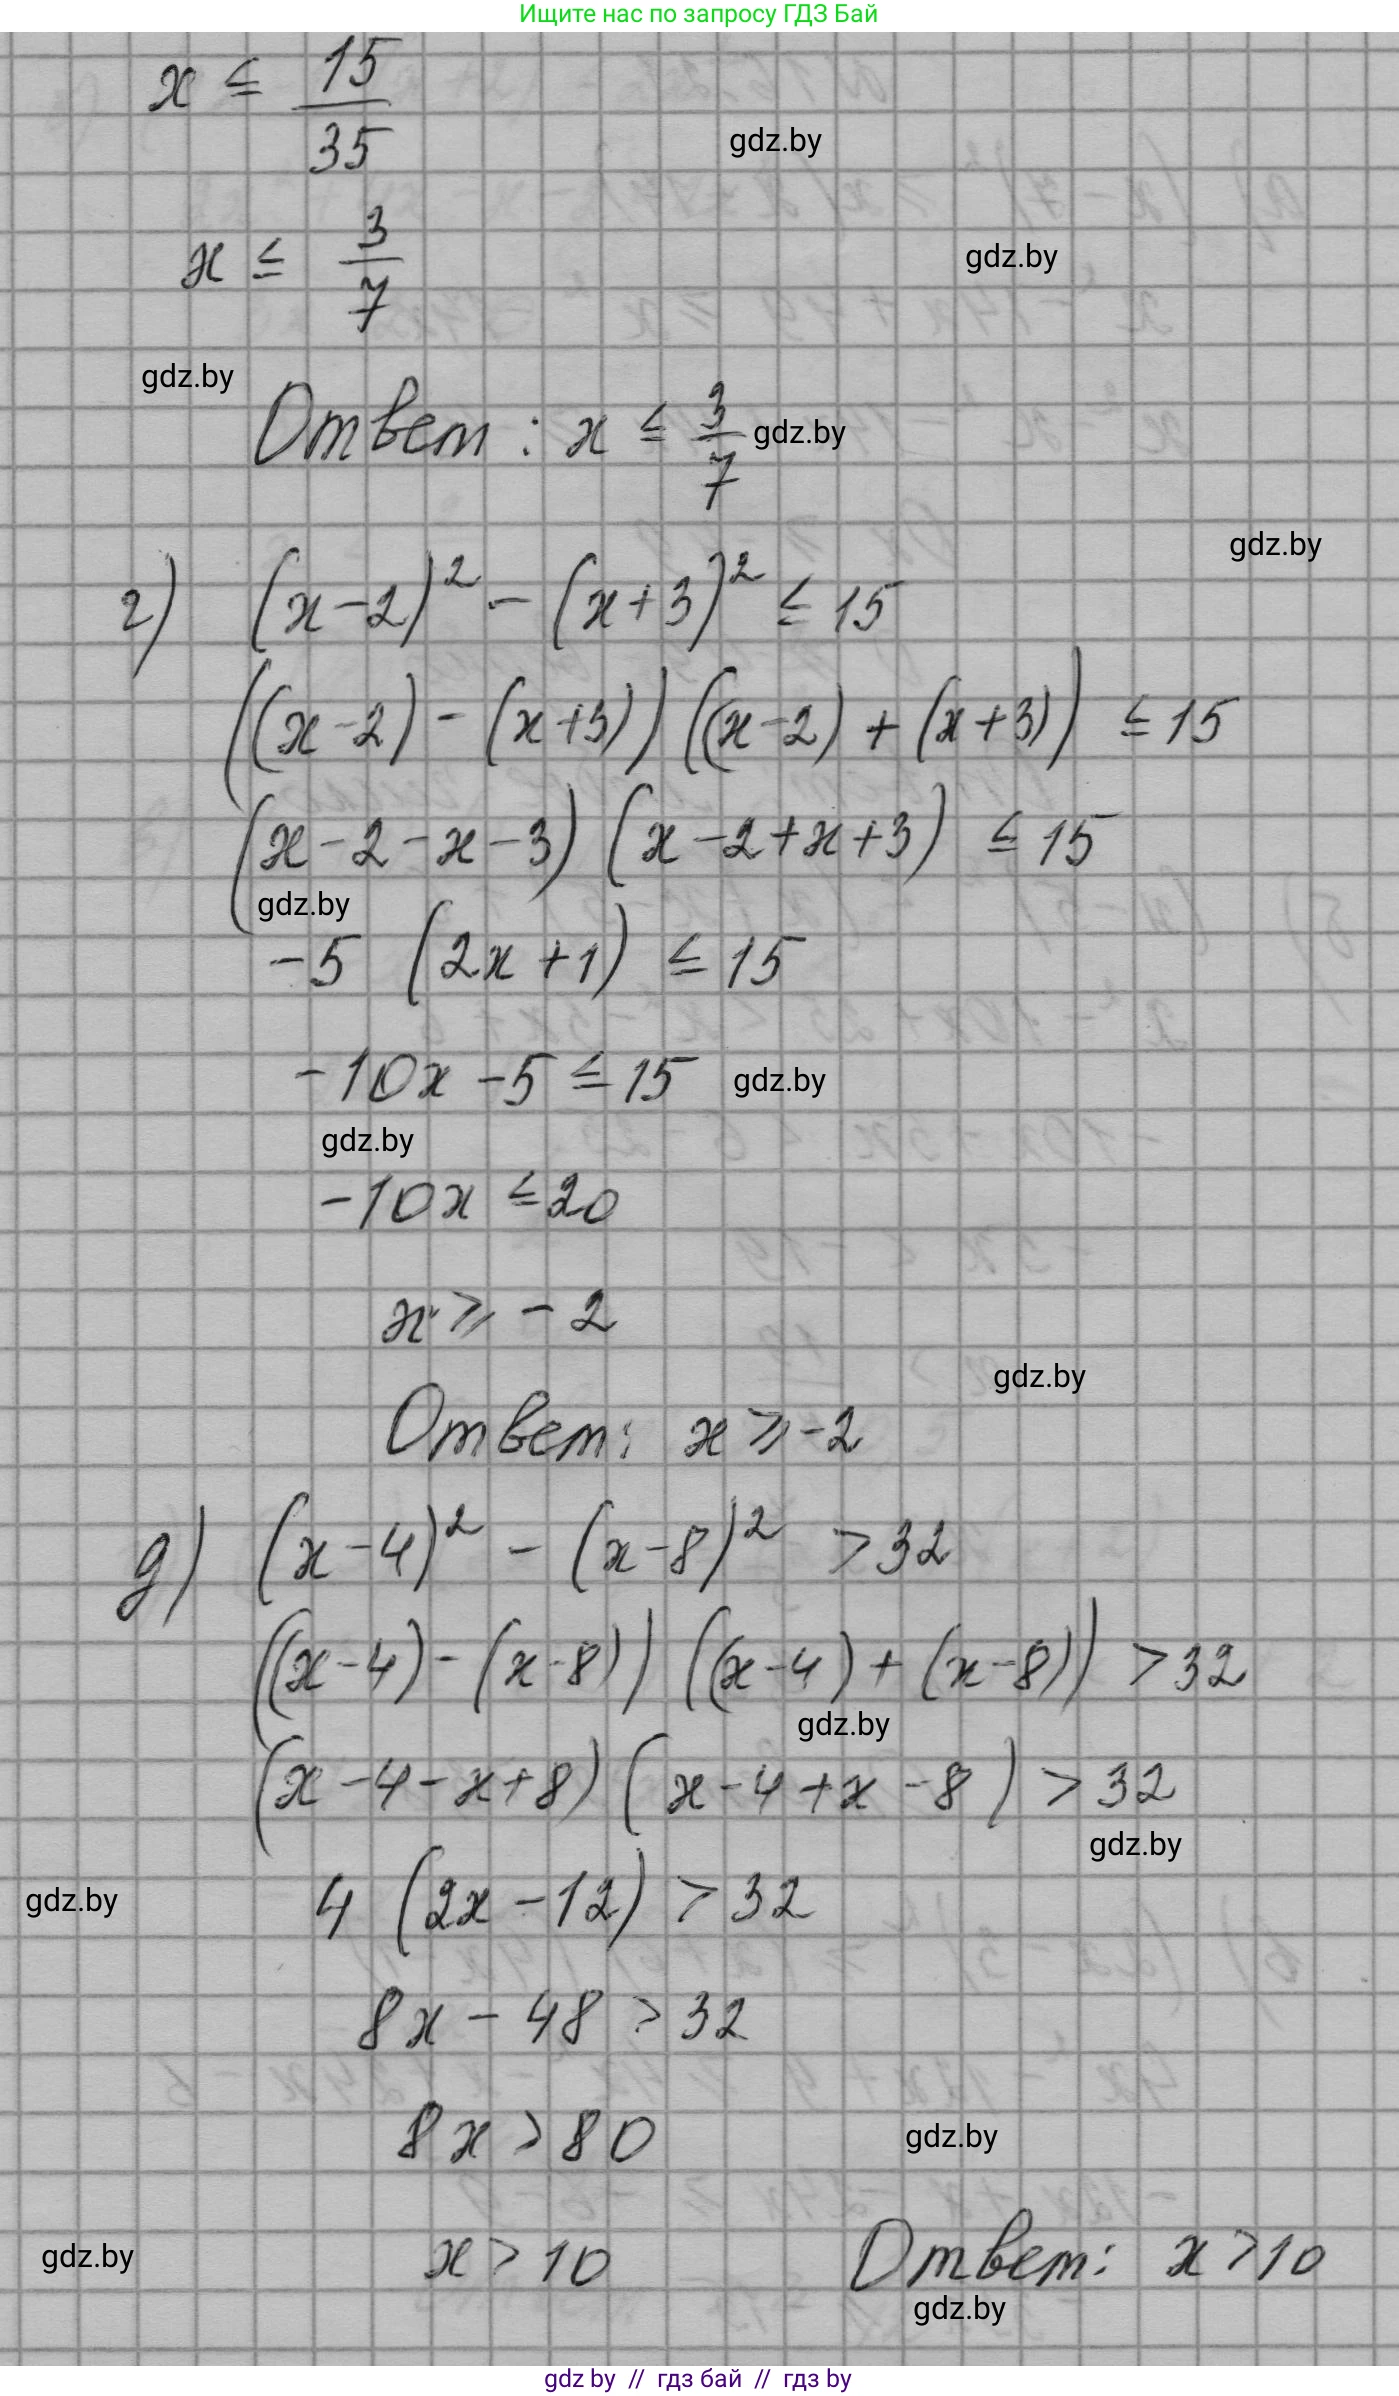 Ищите нас по запросу ГДЗ Бай
x ≤ 15/35
gdz.by
x ≤ 3/7
gdz.by
gdz.by
Ответ: x ≤ 3/7
gdz.by
gdz.by
г) (x-2)² - (x+3)² ≤ 15
((x-2) - (x+3)) ((x-2) + (x+3)) ≤ 15
(x-2-x-3) (x-2+x+3) ≤ 15
gdz.by
-5 (2x+1) ≤ 15
-10x -5 ≤ 15
gdz.by
gdz.by
-10x ≤ 20
x ≥ -2
gdz.by
Ответ: x ≥ -2
д) (x-4)² - (x-8)² > 32
((x-4) - (x-8)) ((x-4) + (x-8)) > 32
gdz.by
(x-4-x+8) (x-4+x-8) > 32
gdz.by
gdz.by
4 (2x-12) > 32
8x - 48 > 32
8x > 80
gdz.by
gdz.by
x > 10 Ответ: x > 10
gdz.by
gdz by // гдз бай // гдз by